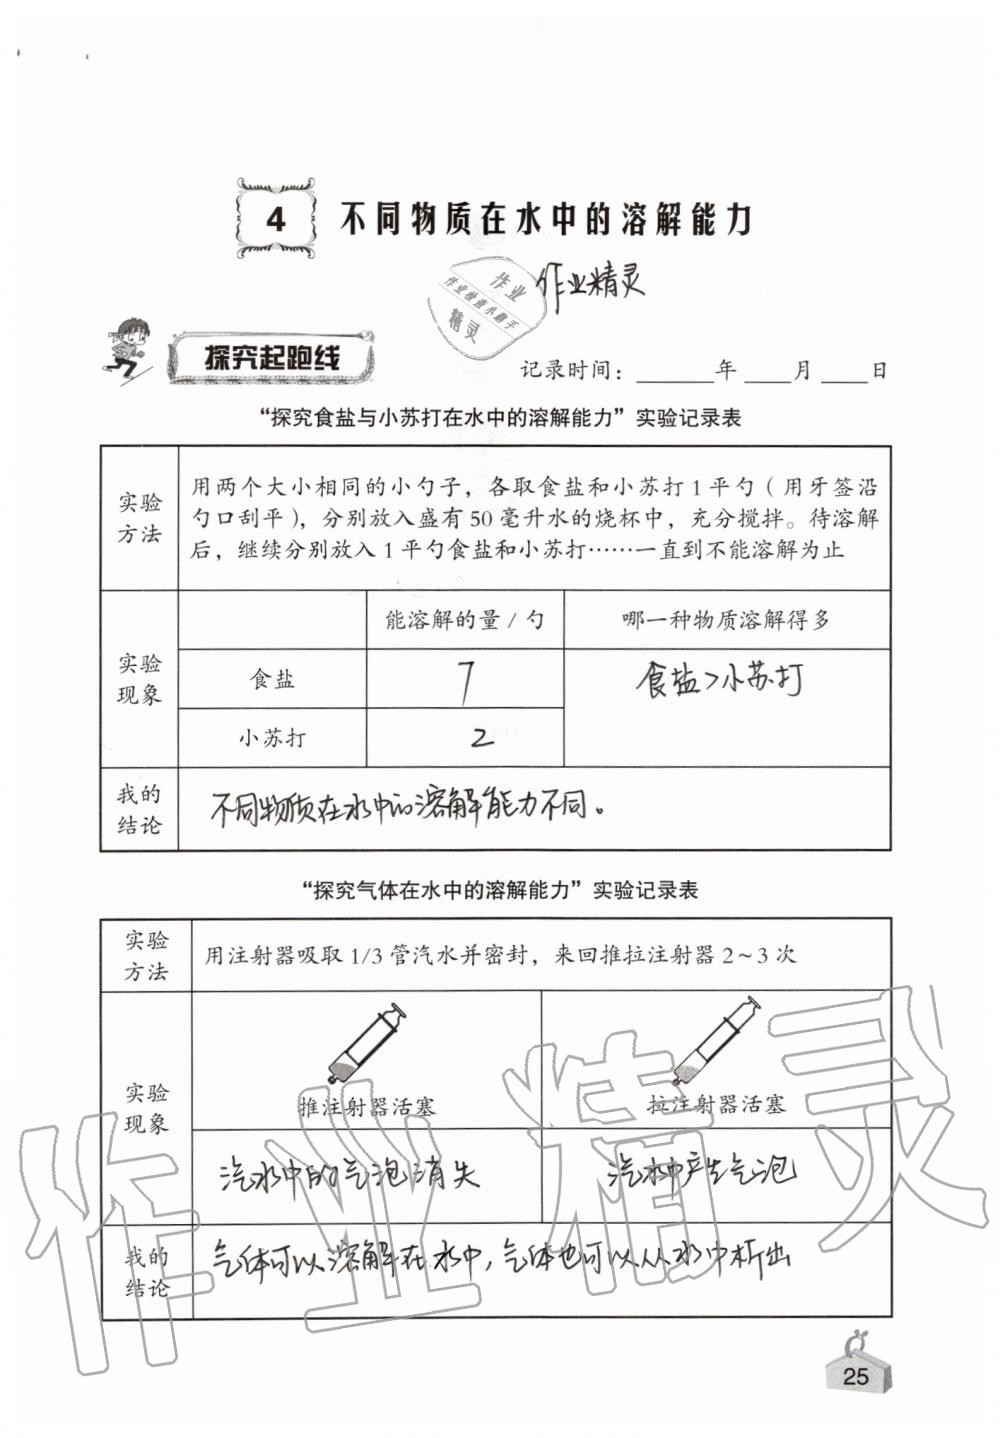 4 不同物质在水中的溶解能力
作业
作业检查小助手
精灵
作业精灵
探究起跑线
记录时间：______年____月____日
“探究食盐与小苏打在水中的溶解能力”实验记录表
实验方法
用两个大小相同的小勺子，各取食盐和小苏打1平勺（用牙签沿
勺口刮平），分别放入盛有50毫升水的烧杯中，充分搅拌。待溶解
后，继续分别放入1平勺食盐和小苏打……一直到不能溶解为止
实验现象
能溶解的量/勺 哪一种物质溶解得多
食盐 7 食盐>小苏打
小苏打 2
我的结论
不同物质在水中的溶解能力不同。
“探究气体在水中的溶解能力”实验记录表
实验方法
用注射器吸取1/3管汽水并密封，来回推拉注射器2~3次
实验现象
推注射器活塞 拉注射器活塞
汽水中的气泡消失 汽水中产生气泡
我的结论
气体可以溶解在水中，气体也可以从水中析出
作业精灵
25